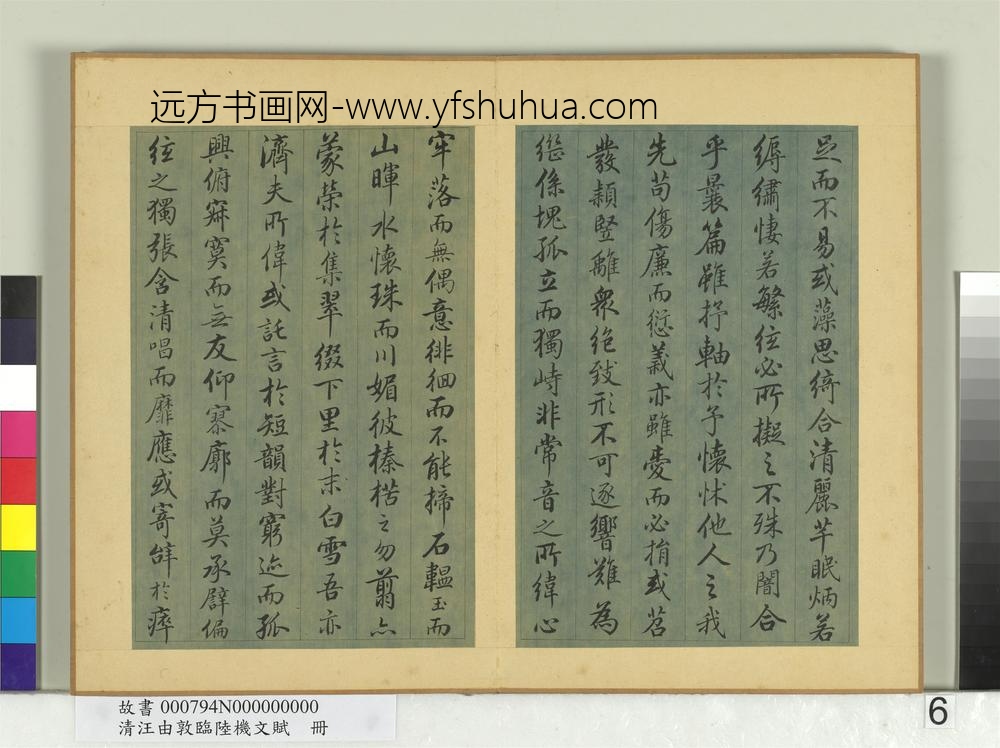 远方书画网-www.yfshuhua.com
足而不易或藻思綺合清麗芊眠炳若
縟繡悽若繁絃必所擬之不殊乃闇合
乎曩篇雖抒軸於予懷怵他人之我
先苟傷廉而愆義亦雖愛而必捐或苕
發穎豎離衆絶致形不可逐響難為
繼係塊孤立而獨峙非常音之所緯心
牢落而無偶意徘徊而不能揥石韞玉而
山暉水懷珠而川媚彼榛楛之勿翦亦
蒙榮於集翠綴下里於末白雪吾亦
濟夫所偉或託言於短韻對窮迹而孤
興俯寂寞而無友仰寥廓而莫承譬偏
絃之獨張含清唱而靡應或寄辭於瘁
故書 000794N000000000
清汪由敦臨陸機文賦 冊
6